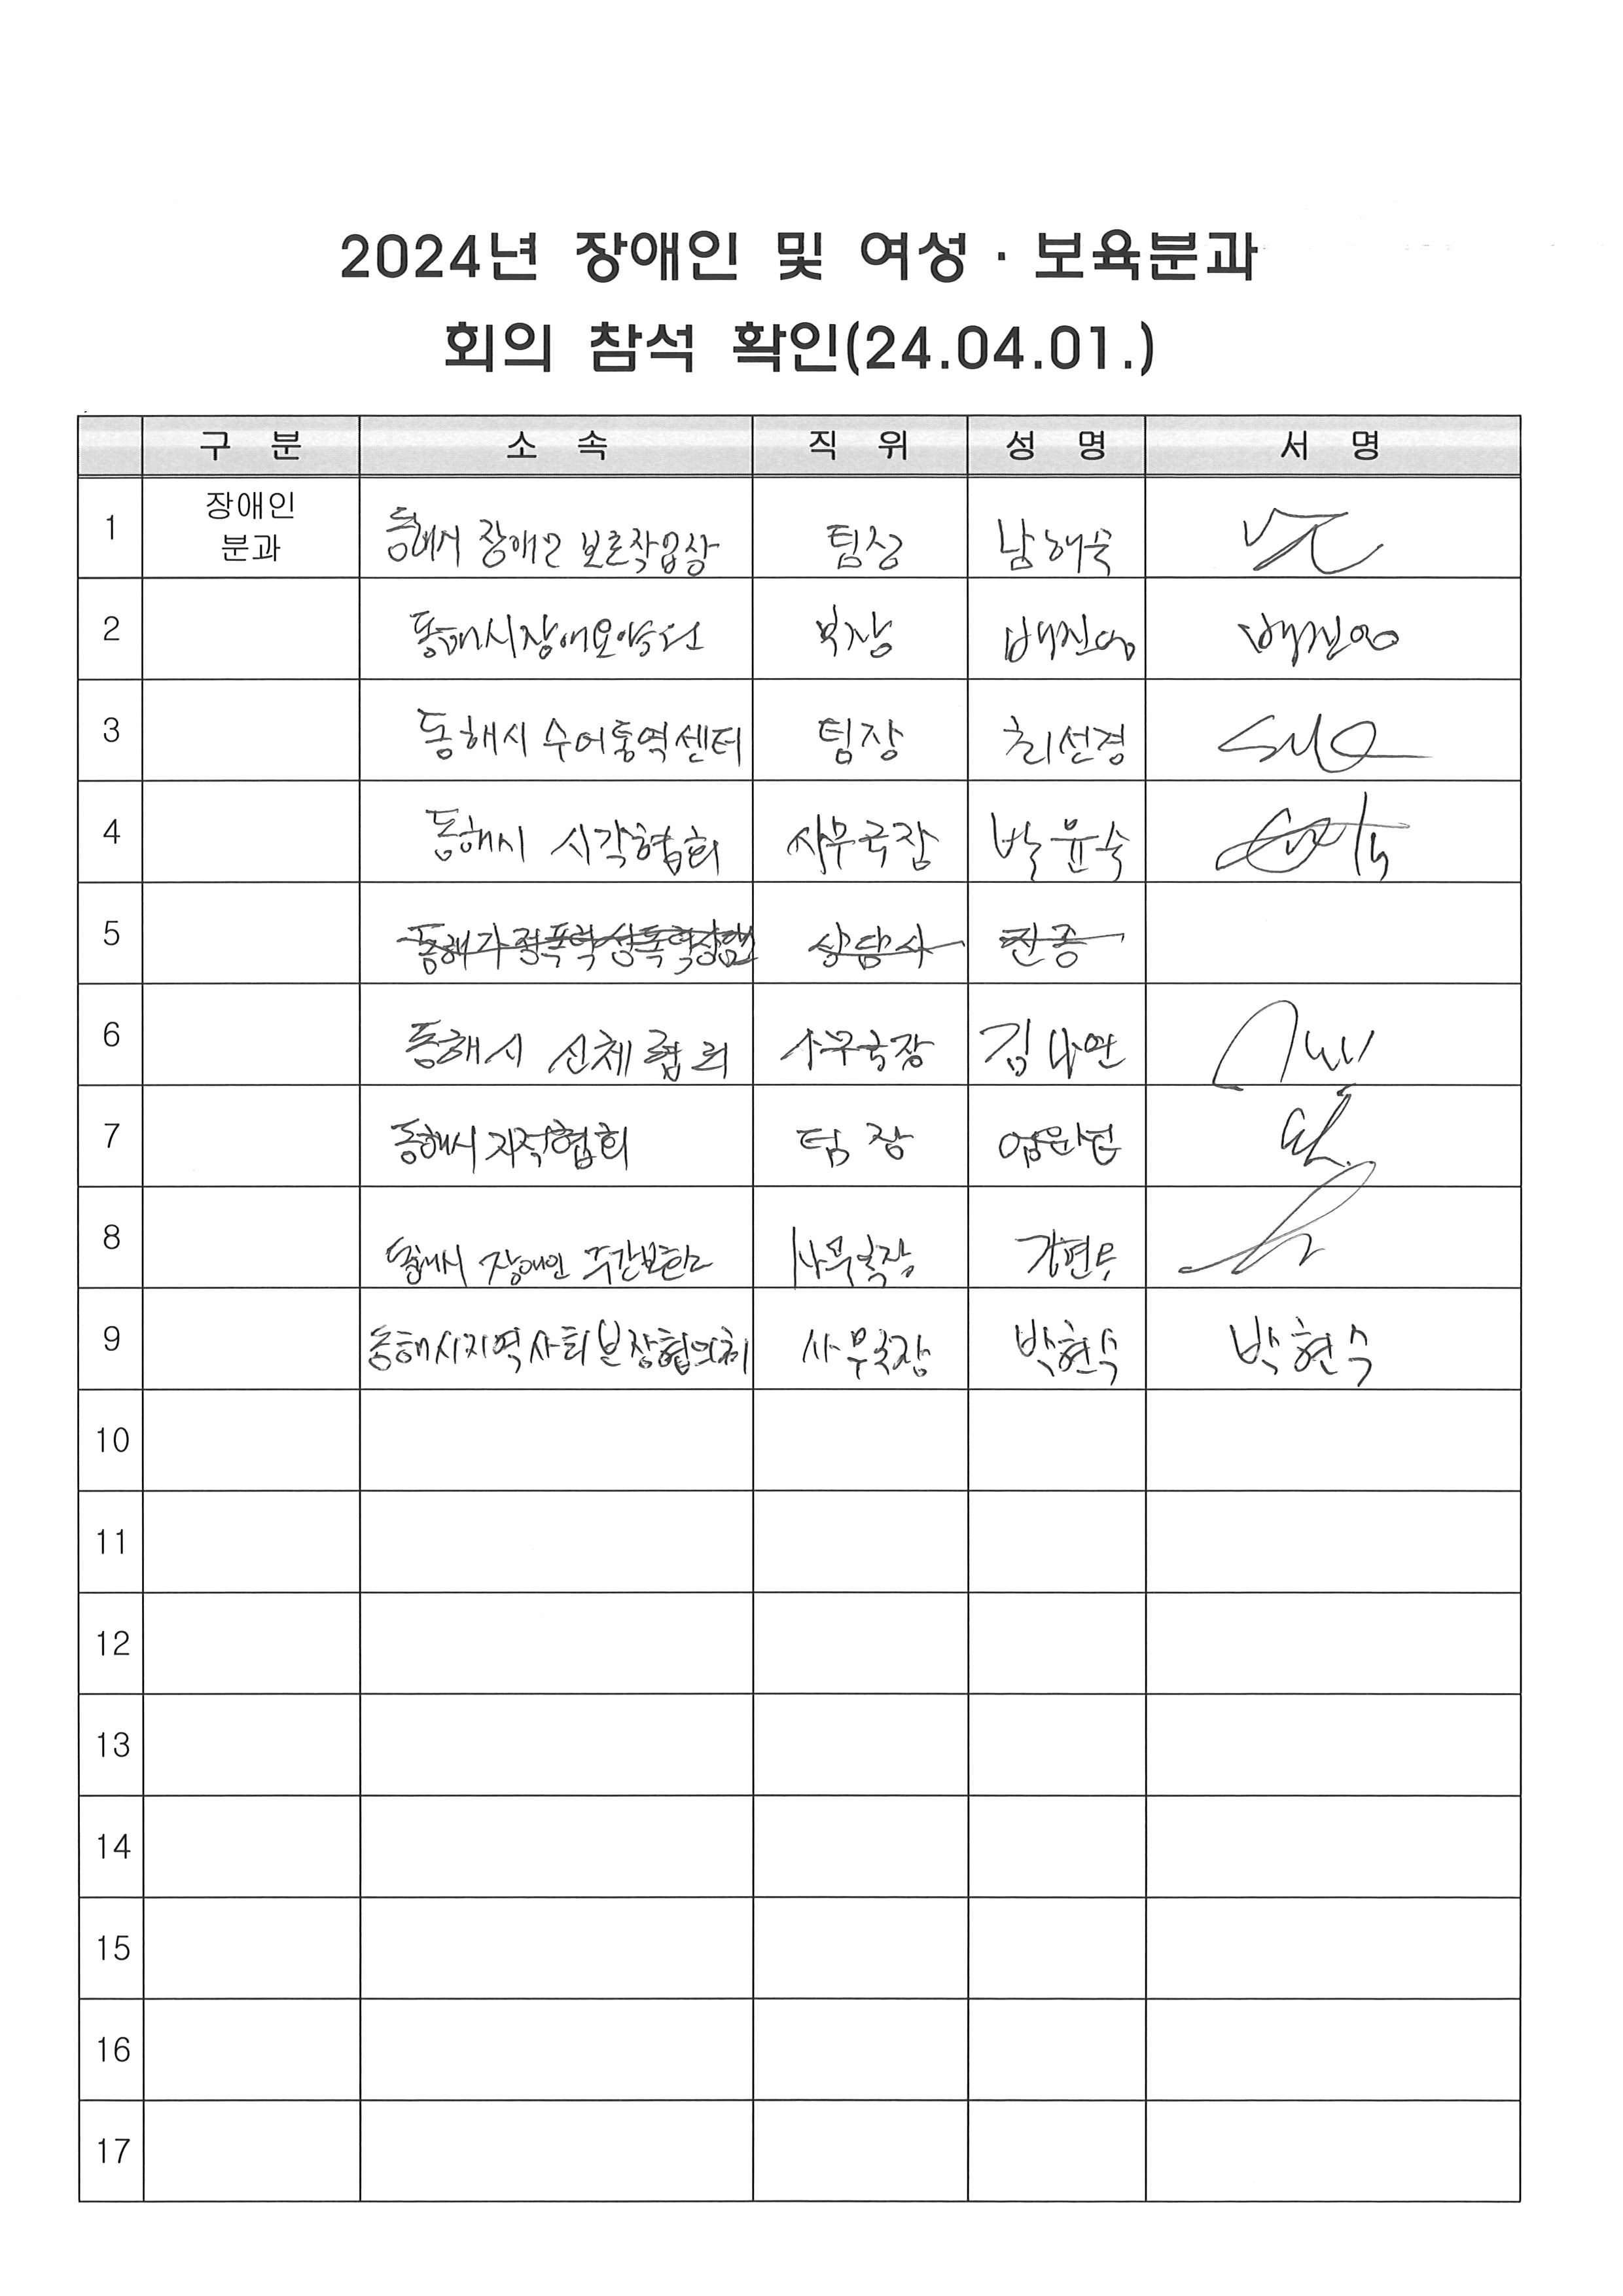 2024년 장애인 및 여성·보육분과
회의 참석 확인(24.04.01.)
구 분 소 속 직 위 성 명 서 명
1 장애인 분과 동해시 장애인 보호작업장 팀장 남해숙
2 동해시장애요양 국장 백진영 백진영
3 동해시 수어통역센터 팀장 최선경
4 동해시 시각협회 사무국장 박윤숙
5 동해가정폭력성폭력상담소 상담사 전종
6 동해시 신체협회 사무국장 김나연
7 동해시 지적협회 팀장
8 동해시 장애인 주간보호소 사무국장
9 동해시지역사회보장협의체 사무국장 박현수 박현수
10
11
12
13
14
15
16
17